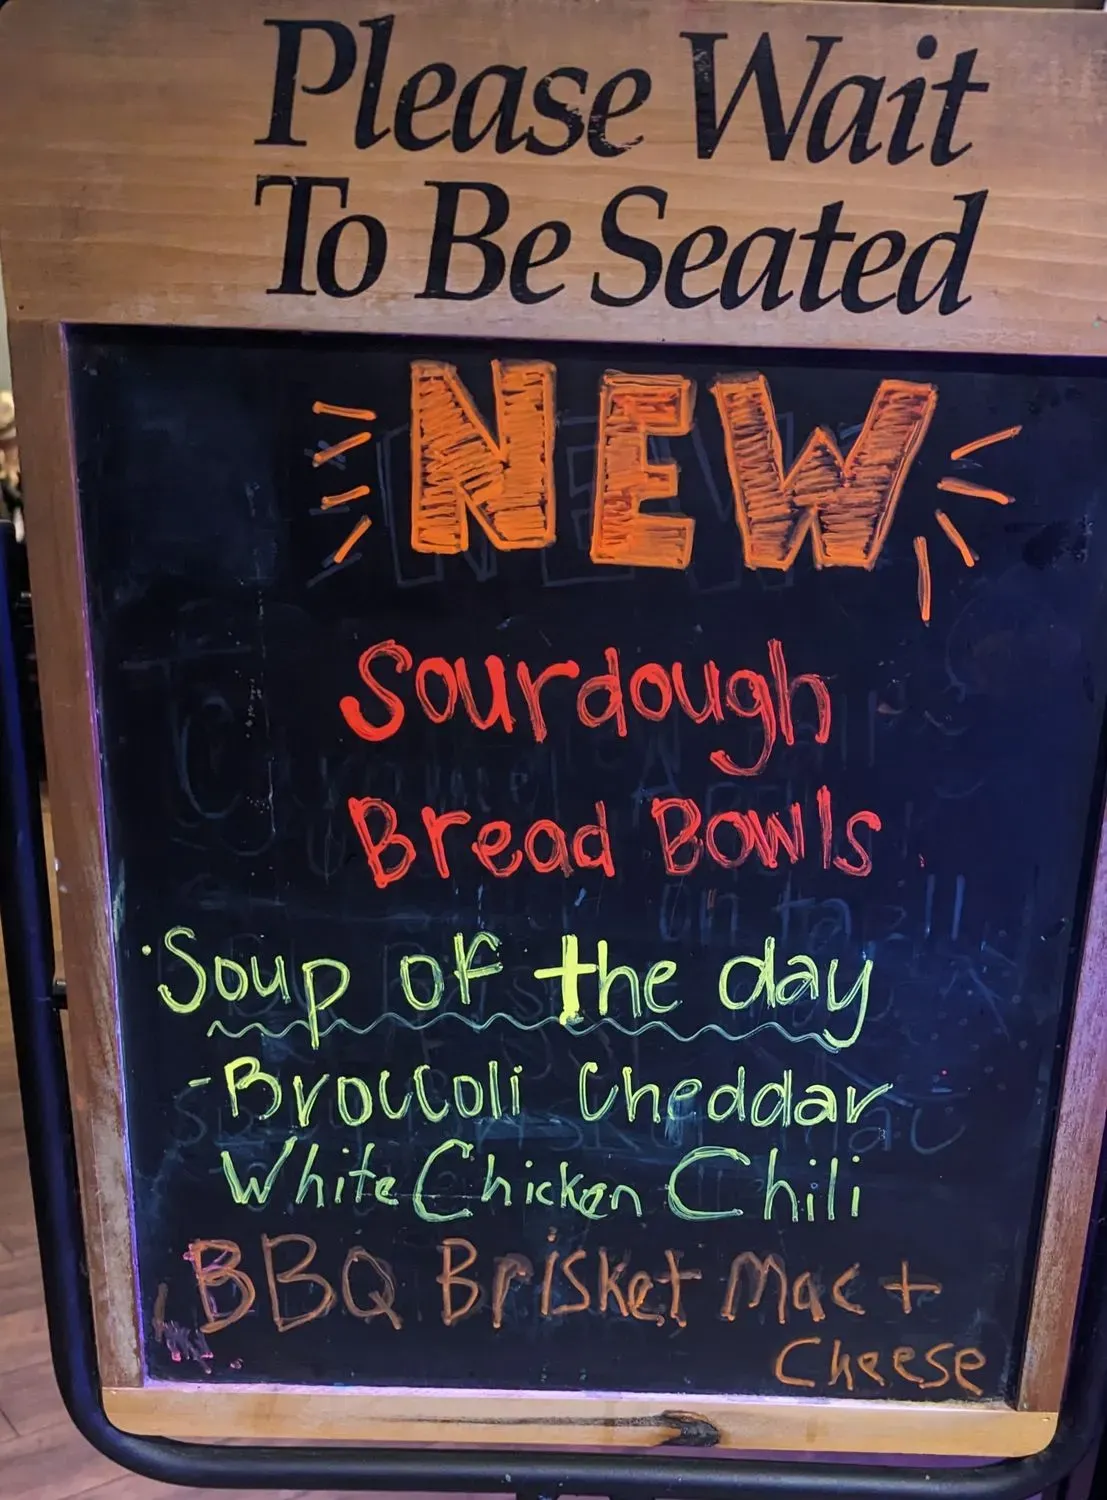 Please Wait
To Be Seated
NEW
Sourdough
Bread Bowls
·Soup of the day
-Broccoli Cheddar
White Chicken Chili
BBQ Brisket Mac +
Cheese